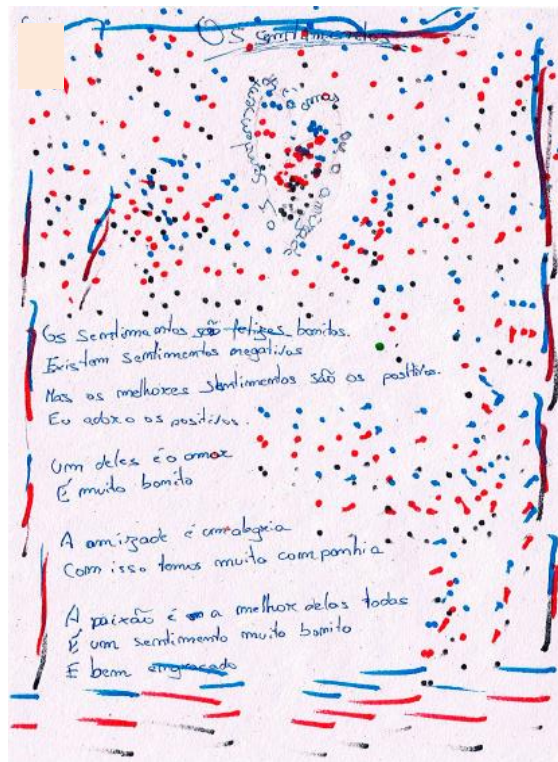 Os Sentimentos
Os sentimentos é o amor ou a amizade
Os sentimentos são felizes bonitos.
Existem sentimentos negativos
Mas os melhores sentimentos são os positivos.
Eu adoro os positivos.
Um deles é o amor
É muito bonito
A amizade é uma alegria
Com isso temos muita companhia
A paixão é a melhor delas todas
É um sentimento muito bonito
E bem engraçado